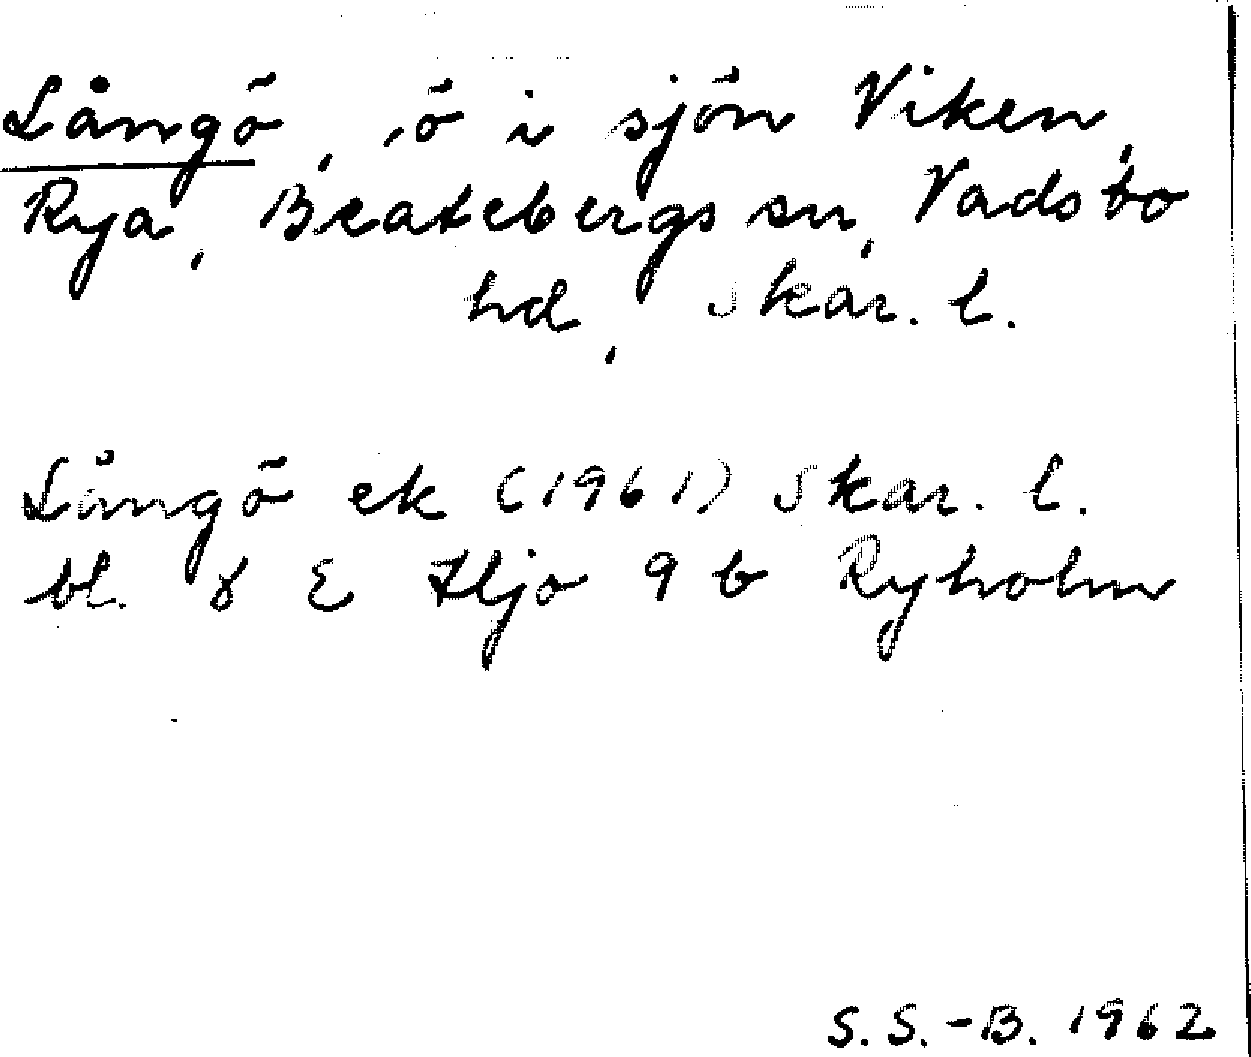 Långö, ö i sjön Viken,
Rya, Beatebergs sn, Vadsbo
hd, Skar. l.
Långö ek (1961) Skar. l.
bl. 8 E Hjo 9 b Ryholm
S. S.-B. 1962